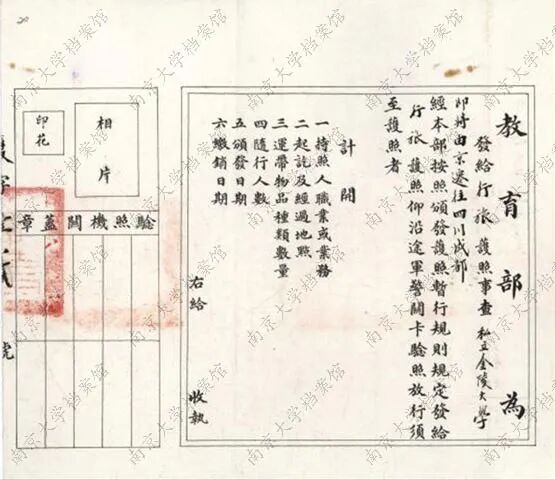 教育部為
發給行旅護照事查私立金陵大學
即將由京遷往四川成都
經本部按照頒發護照暫行規則規定發給
行旅護照仰沿途軍警關卡驗照放行須
至護照者
計開
一持照人職業或業務
二起訖及經過地點
三運帶物品種類數量
四隨行人數
五頒發日期
六繳銷日期
右給
收執
相片
印花
驗照機關蓋章
字
號
南京大学档案馆